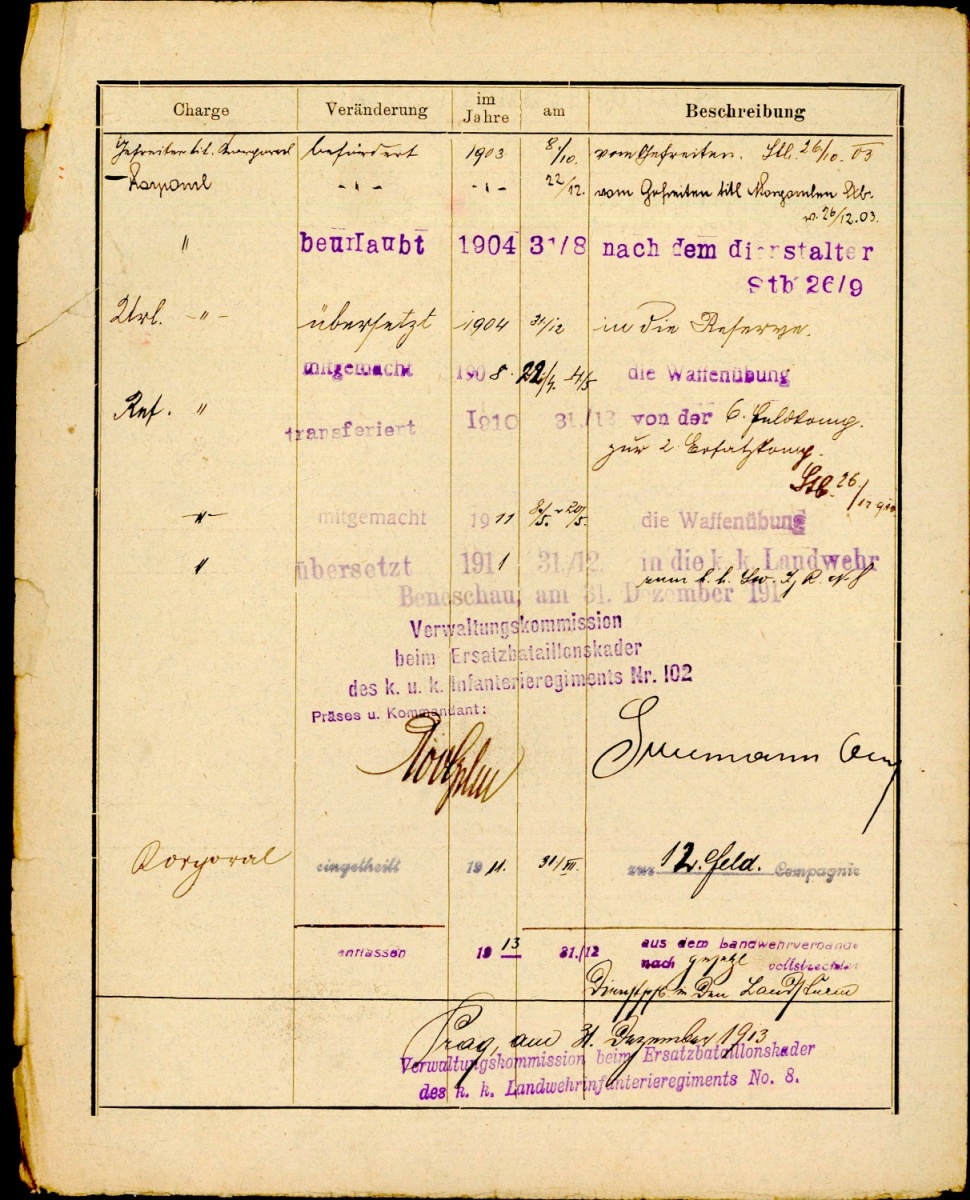 Charge Veränderung im Jahre am Beschreibung
Gefreiter tit. Korporal befördert 1903 8./10. vom Gefreiten. Stb. 26/10. 03
Korporal -"- -"- 22/12. vom Gefreiten titl Korporalen Stb.
v. 26/12.03.
" beurlaubt 1904 31/8 nach dem dienstalter
Stb 26/9
Url. -"- übersetzt 1904 31/12 in die Reserve.
mitgemacht 1908. 22/4. 4/5 die Waffenübung
Ref. " transferiert 1910 31/12 von der 6. Feldkomp.
zur 2 Ersatzkomp.
Stb. 26./12 910
-"- mitgemacht 1911 8/5. - 20/5. die Waffenübung
" übersetzt 1911 31./12. in die k. k. Landwehr
zum k. k. Lw. I. R. N. 8
Beneschau, am 31. Dezember 191
Verwaltungskommission
beim Ersatzbataillonskader
des k. u. k. Infanterieregiments Nr. 102
Präses u. Kommandant:
Korporal eingetheilt 1911. 31/XII. zur 12. Feld. Compagnie
entlassen 1913 31./12 aus dem Landwehrverbande
nach gesetzl vollstreckter
Dienstpfl. in den Landsturm
Prag, am 31. Dezember 1913
Verwaltungskommission beim Ersatzbataillonskader
des k. k. Landwehrinfanterieregiments No. 8.